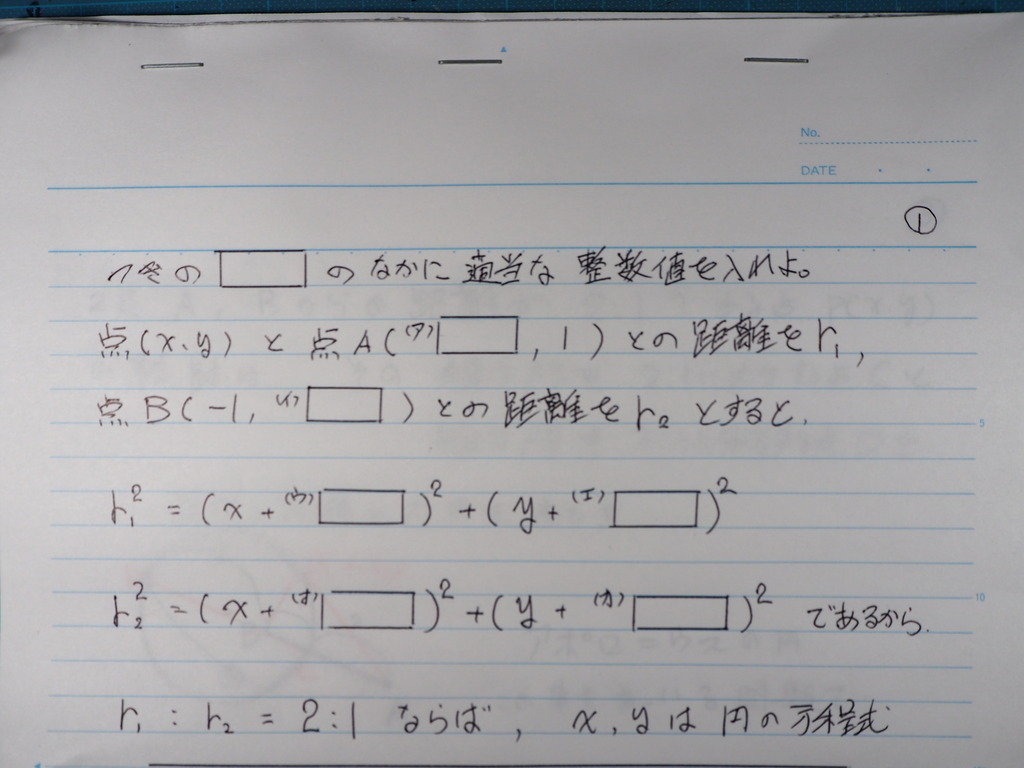 No.
DATE
①
次の□のなかに適当な整数値を入れよ。
点(x、y)と点A((ア)□, 1)との距離をr₁,
点B(-1, (イ)□)との距離をr₂とすると、
r₁² = (x + (ウ)□)² + (y + (エ)□)²
5
r₂² = (x + (オ)□)² + (y + (カ)□)² であるから、
10
r₁ : r₂ = 2:1 ならば, x, yは円の方程式